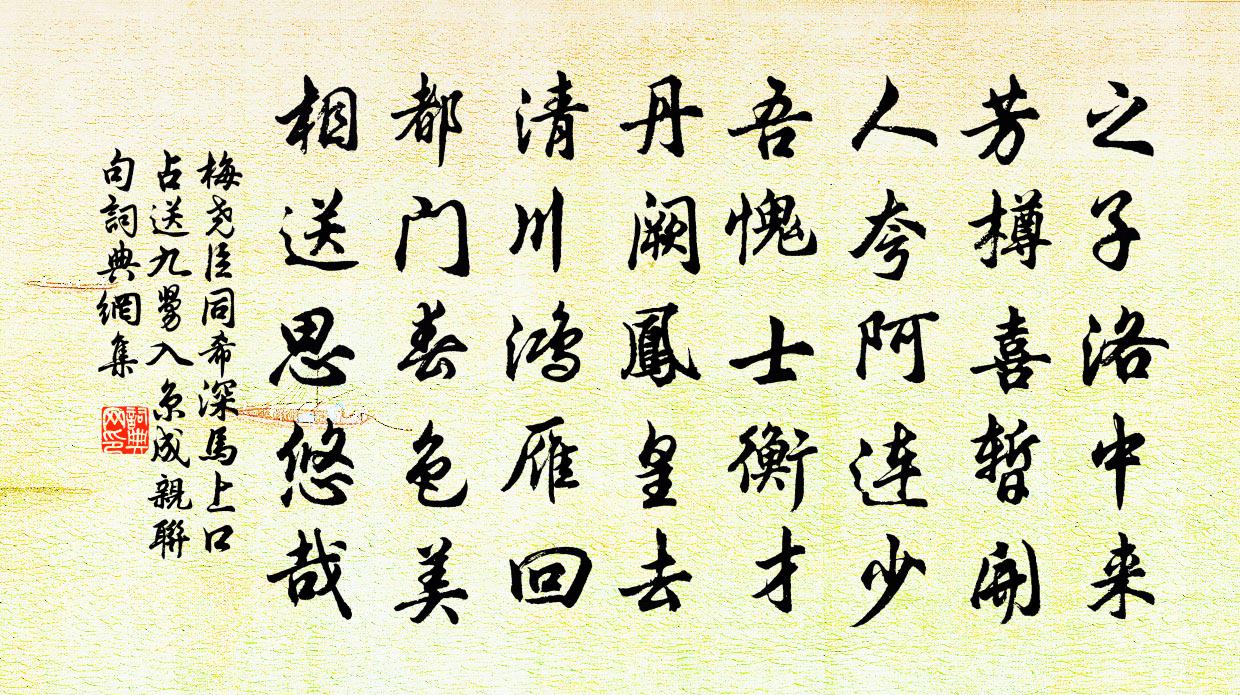 之子洛中来
芳樽喜暫開
人夸阿连少
吾愧士衡才
丹阙鳳皇去
清川鴻雁回
都门春色美
相送思悠哉
梅尧臣同希深馬上口
占送九舅入京成親聯
句詞典網集
詞典网印